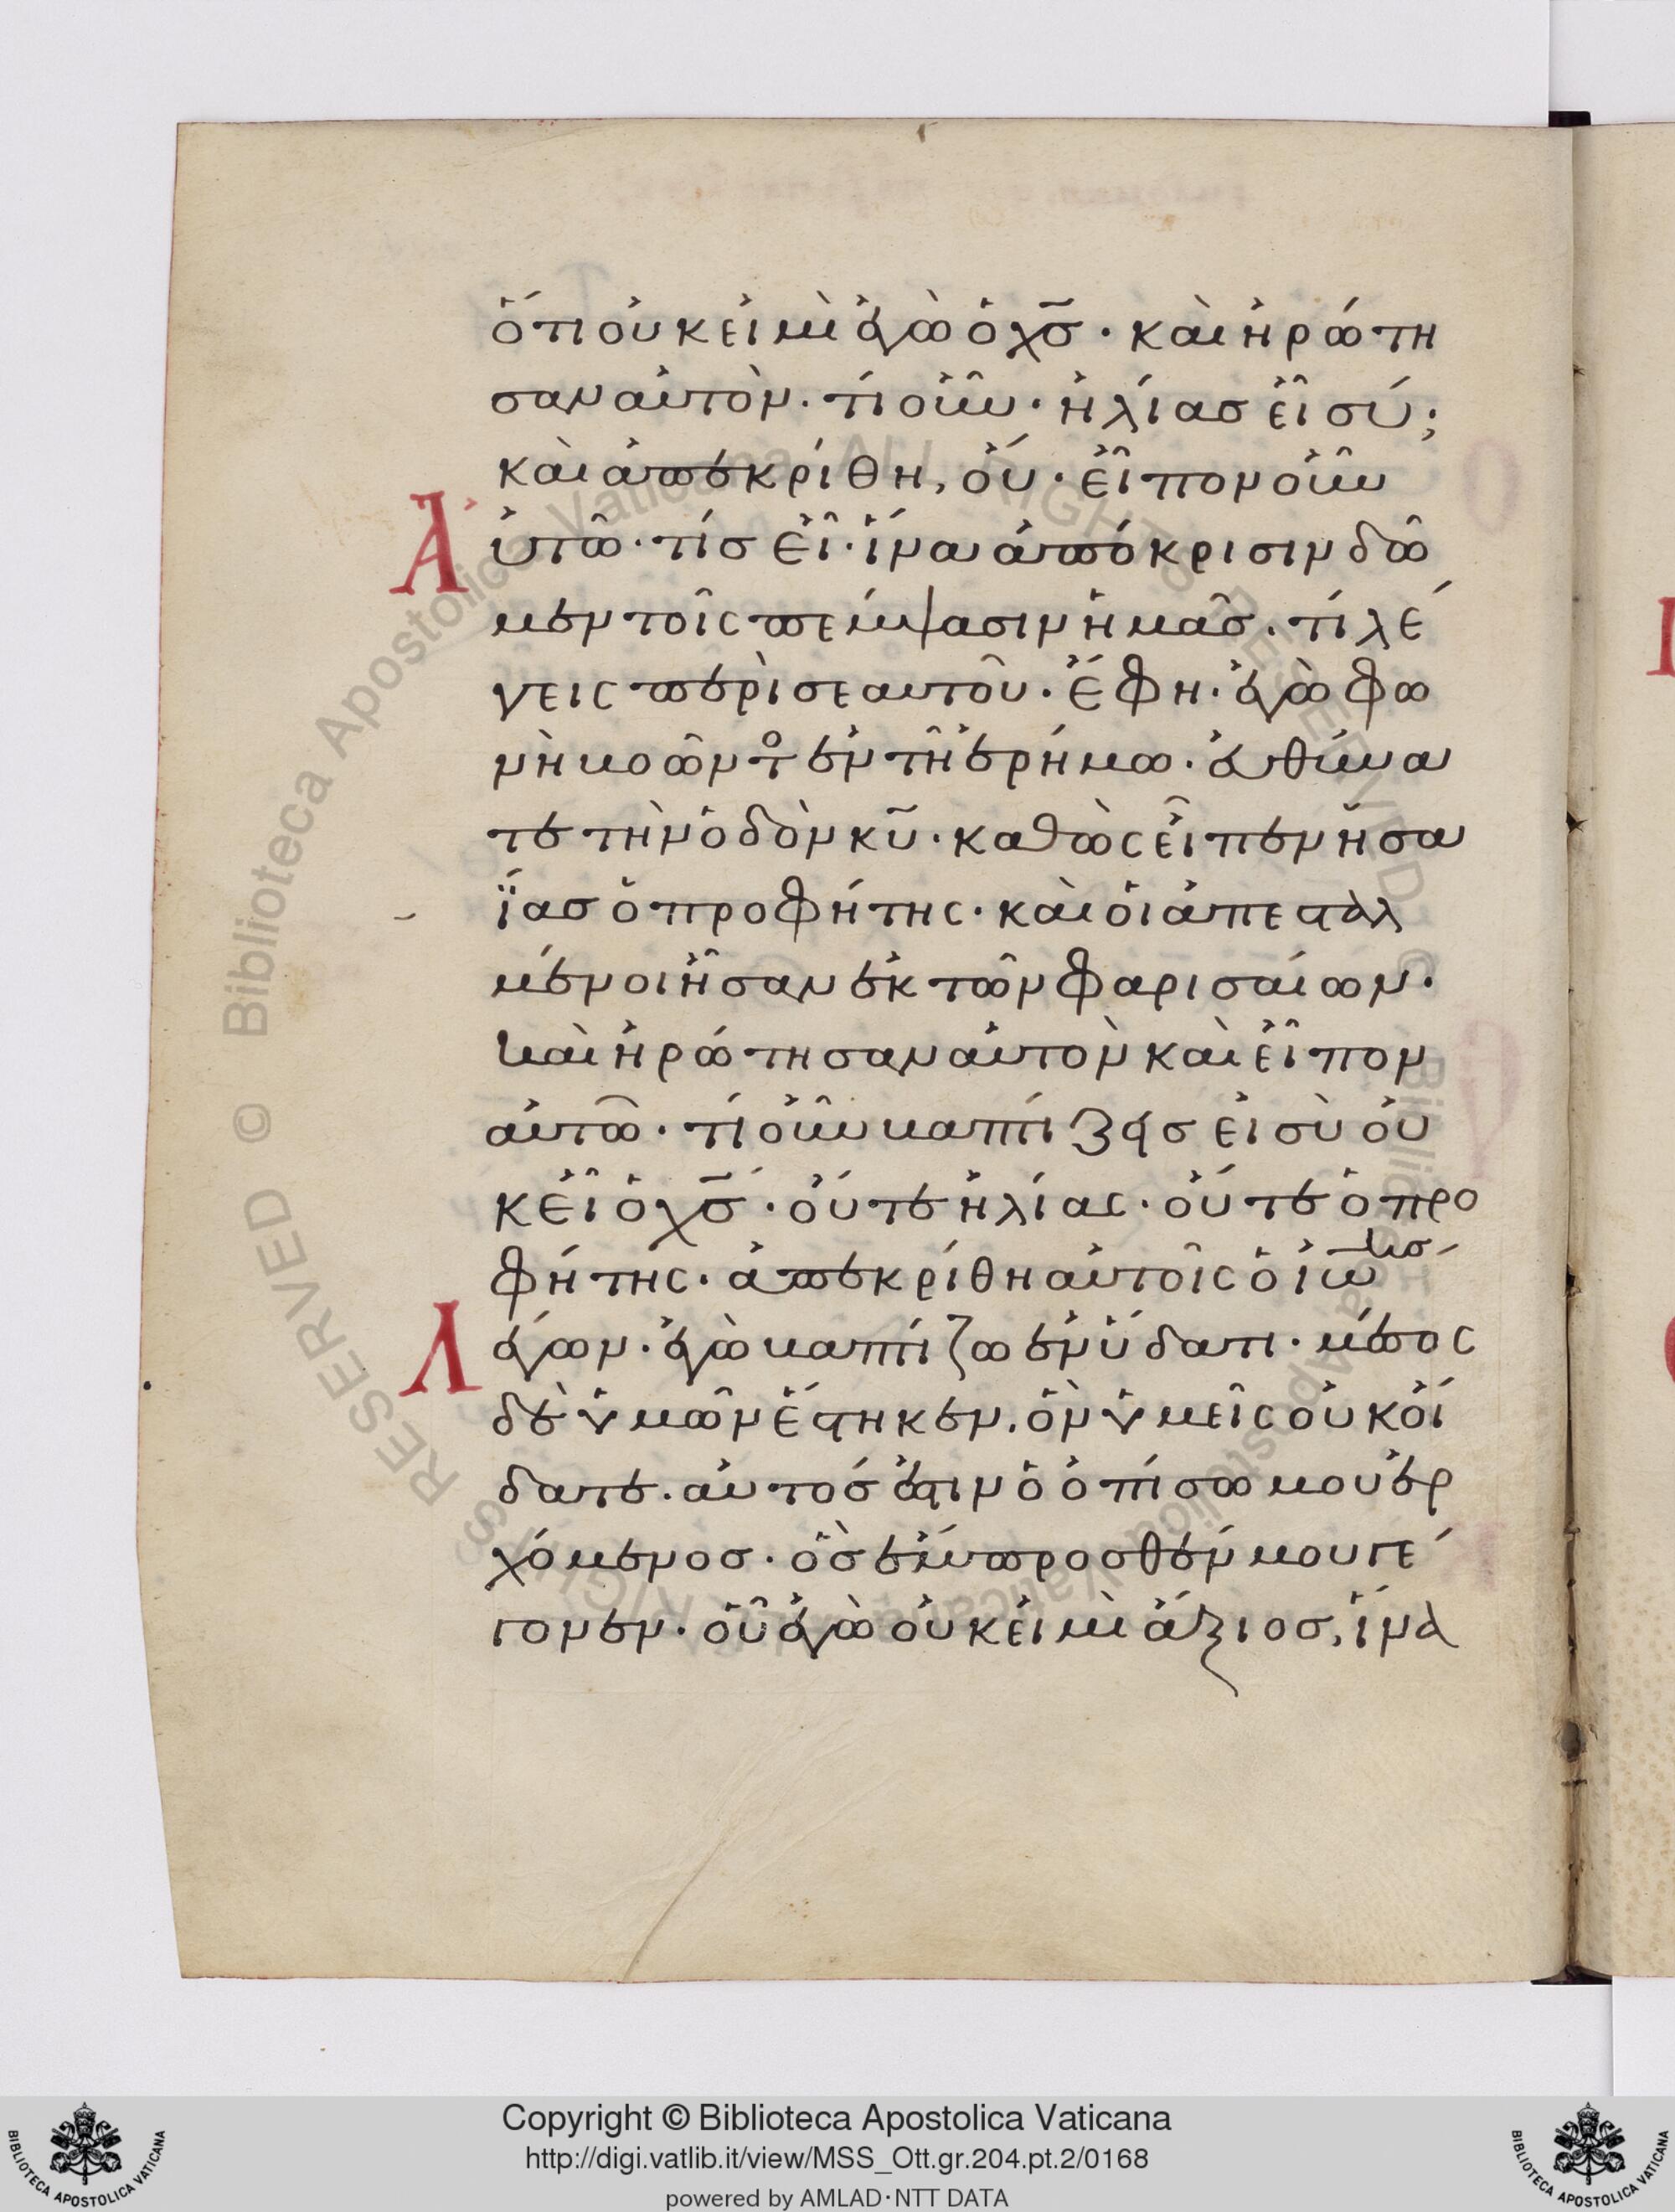 ὅτι οὐκ εἰμὶ ἐγὼ ὁ χ̅σ̅· καὶ ἠρώτη
σαν αὐτὸν· τί οὖν· ἠλίασ εἶ σύ;
καὶ ἀπεκρίθη, οὔ· εἶπον οὖν
Ἀυτῶ· τίσ εἶ· ἵνα ἀπόκρισιν δῶ
μεν τοῖς πέμψασιν ἡμᾶσ· τί λέ
γεις περὶ σεαυτοῦ· ἔφη· ἐγὼ φω
νὴ βοῶντο ἐν τῆ ἐρήμω· ἐυθύνα
τε τὴν ὁδὸν κ̅υ̅· καθὼς εἶπεν ἠσα
ΐας ὁ προφήτης· καὶ οἱ ἀπεσταλ
μένοι ἦσαν ἐκ τῶν φαρισαίων·
καὶ ἠρώτησαν αὐτὸν καὶ εἶπον
αὐτῶ· τί οὖν βαπτίζεισ εἰ σὺ οὐ
κ εἶ ὁ χ̅σ̅· οὔτε ἠλίας· οὔτε ὁ προ
φήτης· ἀπεκρίθη αὐτοῖς ὁ ἰω̅ησ
Λέγων· ἐγὼ βαπτίζω ἐν ὕδατι· μέσος
δὲ ὑμῶν ἕστηκεν· ὃν ὑμεῖς οὐκ οἴ
δατε· αὐτόσ ἐστιν ὁ ὀπίσω μου ἐρ
χόμενοσ· ὃσ ἔμπροσθέν μου γέ
γονεν· οὗ ἐγὼ οὐκ εἰμὶ ἄξιοσ, ἵνα
RESERVED © Biblioteca Apostolica Vaticana, ALL RIGHTS RESERVED © Biblioteca Apostolica Vaticana, ALL RIGHTS
Copyright © Biblioteca Apostolica Vaticana
http://digi.vatlib.it/view/MSS_Ott.gr.204.pt.2/0168
powered by AMLAD·NTT DATA
BIBLIOTECA APOSTOLICA VATICANA
BIBLIOTECA APOSTOLICA VATICANA